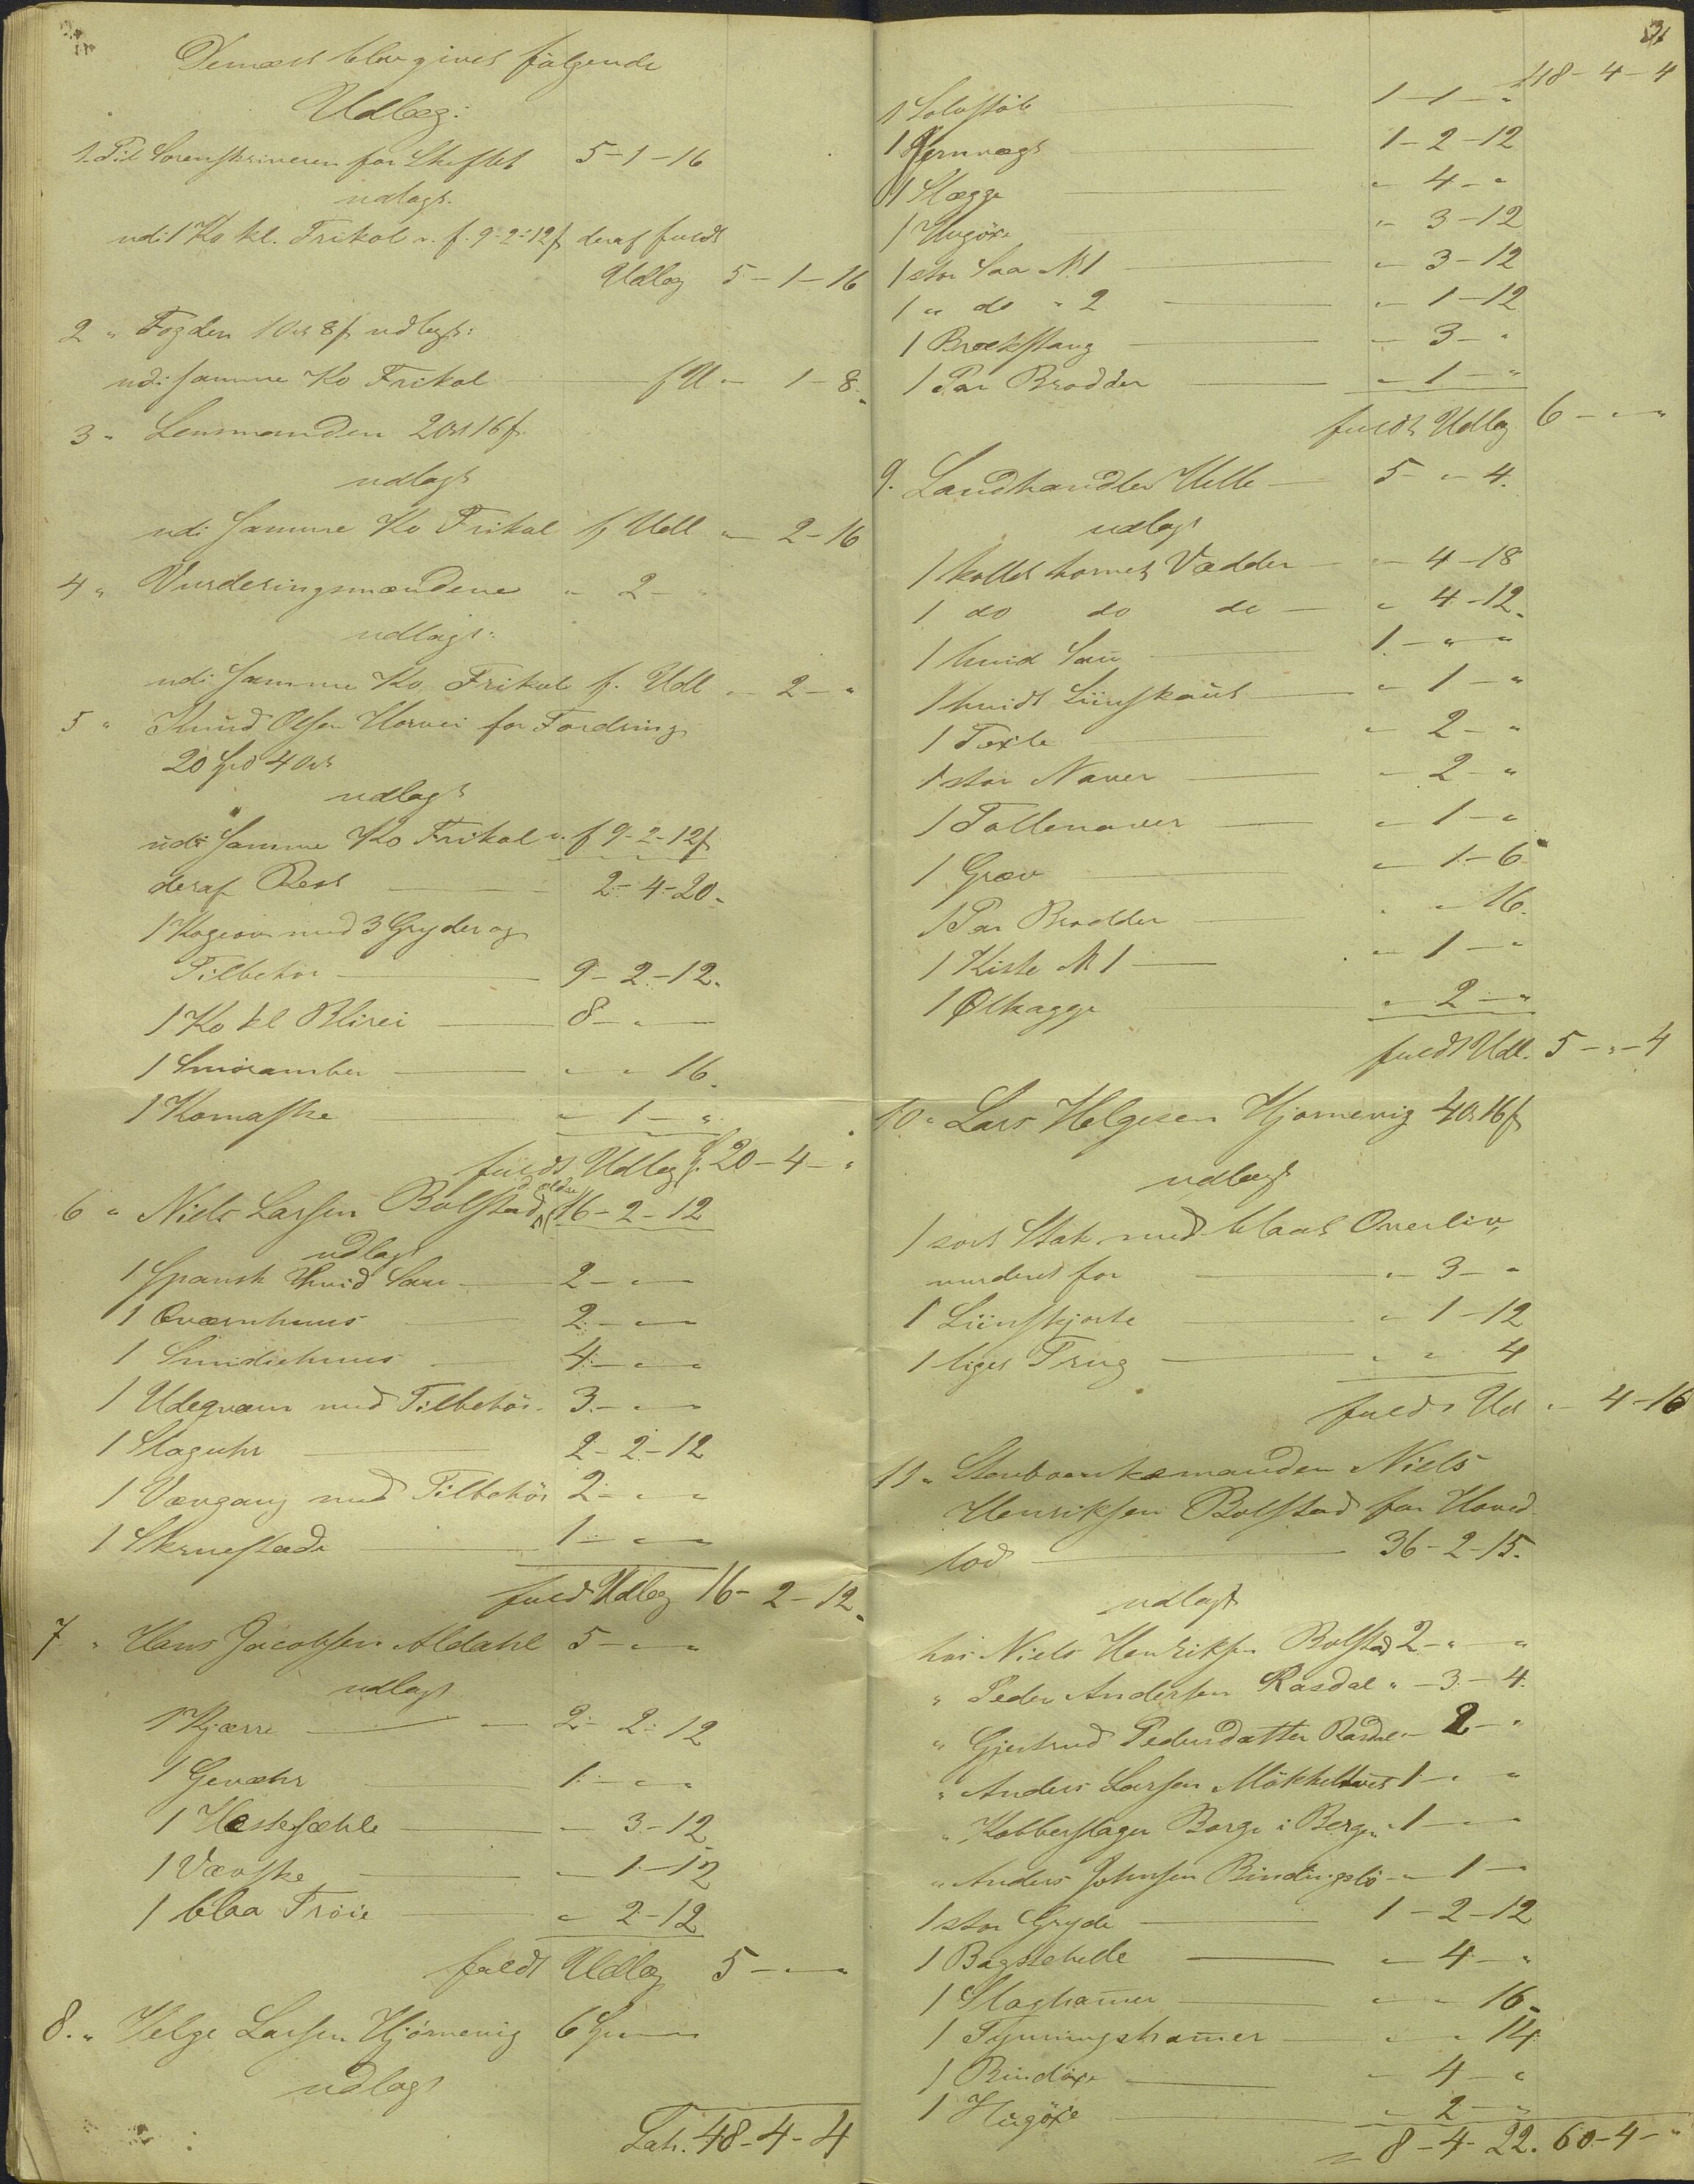 Demæst blev givet følgende
Udlæg:
1. Til Sorenskriveren for Skiftet 5-1-16
udlagt.
udi 1 Ko kl. Frikol v. f. 9-2-12 ß deraf fuldt
Udlæg 5-1-16
2 " Fogden 1 Ort 8 ß udlagt:
udi samme Ko Frikol f U " 1-8.
3 " Lensmanden 2 Ort 16 ß.
udlagt
udi samme Ko Frikol f Udl " 2-16
4 " Vurderingsmændene " 2- "
udlagt:
udi samme Ko Frikol f. Udl " 2- "
5 " Knud Olsen Horvei for Fordring
20 Spd 4 Ort
udlagt
udi samme Ko Frikol v. f 9-2-12 ß
deraf Rest 2-4-20.
1 Kogeovn med 3 Gryder og
Tilbehør 9-2-12.
1 Ko kl Blirei 8- " - "
1 Smørambar " - " 16.
1 Komaske " 1- "
fuldt Udlæg 20-4- "
6 " Niels Larsen Bolstad d ældre 16-2-12
udlagt
1 Spansk hvid Sau 2- " - "
1 Qværnhuus 2- " - "
1 Smidiehuus 4- " - "
1 Udeqværn med Tilbehør 3- " - "
1 Slaguhr 2-2-12
1 Vævgang med Tilbehør 2- " - "
1 Skruestæde 1- " - "
fuldt Udlæg 16-2-12.
7 " Hans Jacobsen Aldahl 5- " - "
udlagt
1 Kjærre 2-2-12
1 Gevæhr 1- " - "
1 Hestesæhle " 3-12
1 Vævske " 1-12
1 blaa Trøie " 2-12
fuldt Udlæg 5- " - "
8. " Helge Larsen Hjørnevig 6 Sp " - "
udlagt
Lat. 48-4-4
31
48-4-4
1 Solvstøb 1-1- "
1 Jernvægt 1-2-12
1 Slægge " 4- "
1 Hugøxe " 3-12
1 stor Saa N. 1 " 3-12
1 " do " 2 " 1-12
1 Brækstang " 3- "
1 Par Brodder " 1- "
fuldt Udlæg 6- " - "
9. Landhandler Helle 5- " 4.
udlagt
1 kollet hornet Vædder " 4-18
1 do do do " 4-12.
1 hvid Sau 1- " - "
1 hvidt Liinskaut " 1- "
1 Texle " 2- "
1 stor Naver " 2- "
1 Tollenaver " 1- "
1 Græv " 1-6
1 Par Brodder " " 16.
1 Kiste N 1 " 1- "
1 Ølkagge " 2- "
fuldt Udl. 5- " -4
10 " Lars Helgesen Hjørnevig 4 Ort 16 ß
udlagt
1 sort Stak med blaat Overliv,
vurderet for " 3- "
1 Liinskjorte " 1-12
1 liget Trug " " 4
fuldt Ud " 4-16
11 " Stervboenkemanden Niels
Henriksen Bolstad for Hoved-
lod 36-2-15.
udlagt
hos Niels Henriksen Bolstad 2- " - "
" Peder Andersen Rasdal " -3-4.
" Gjertrud Pedersdatter Rasdal " 2- "
" Anders Larsen Møkkeltvet 1- " - "
" Kobberslager Borge i Bergen 1- " - "
" Anders Johnsen Bindingslø " 1- "
1 stor Gryde 1-2-12
1 Bagstehelle " 4- "
1 Slaghamer " " 16.
1 Tyningshamer " " 14
1 Bindøxe " 4- "
1 Hugøxe " 2- "
8-4-22. 60-4- "